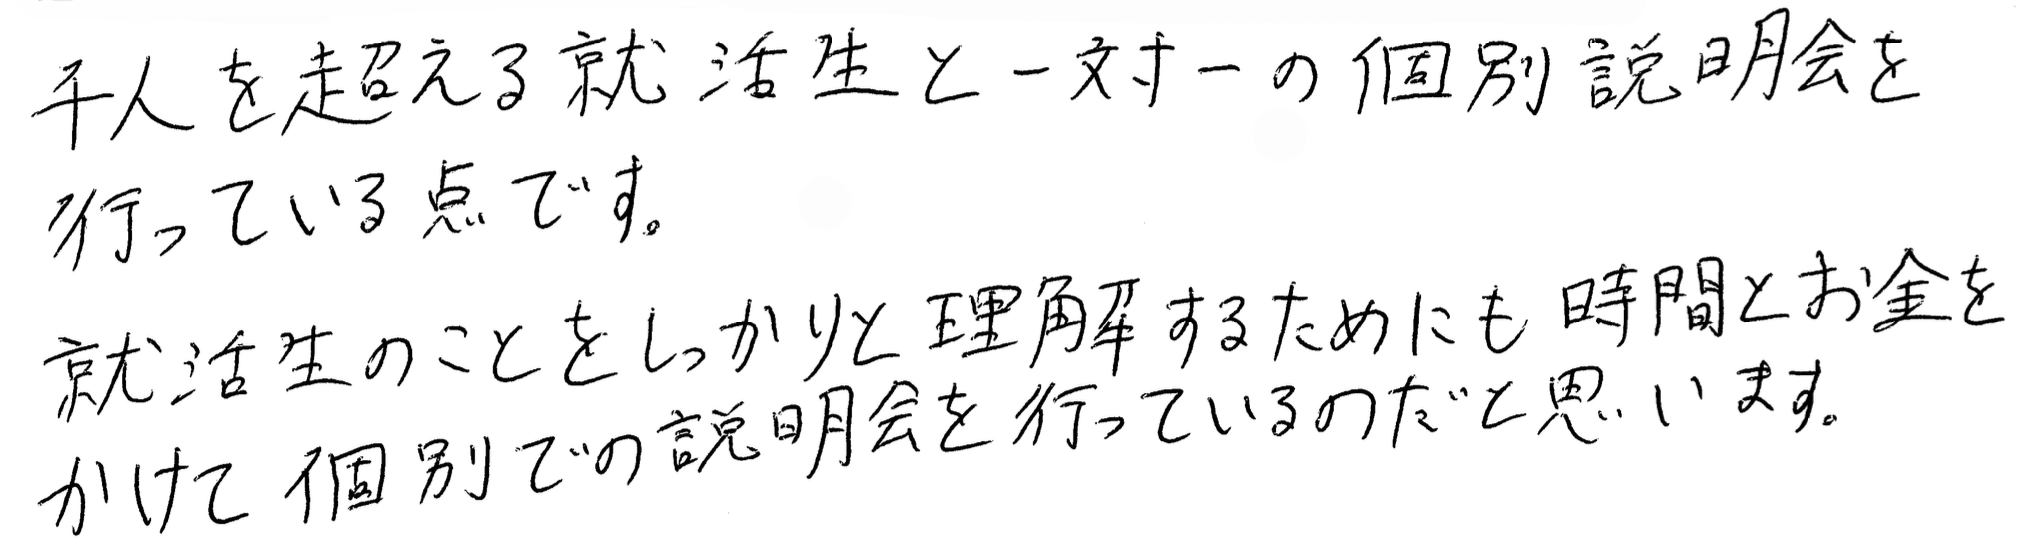 千人を超える就活生と一対一の個別説明会を
行っている点です。
就活生のことをしっかりと理解するためにも時間とお金を
かけて個別での説明会を行っているのだと思います。